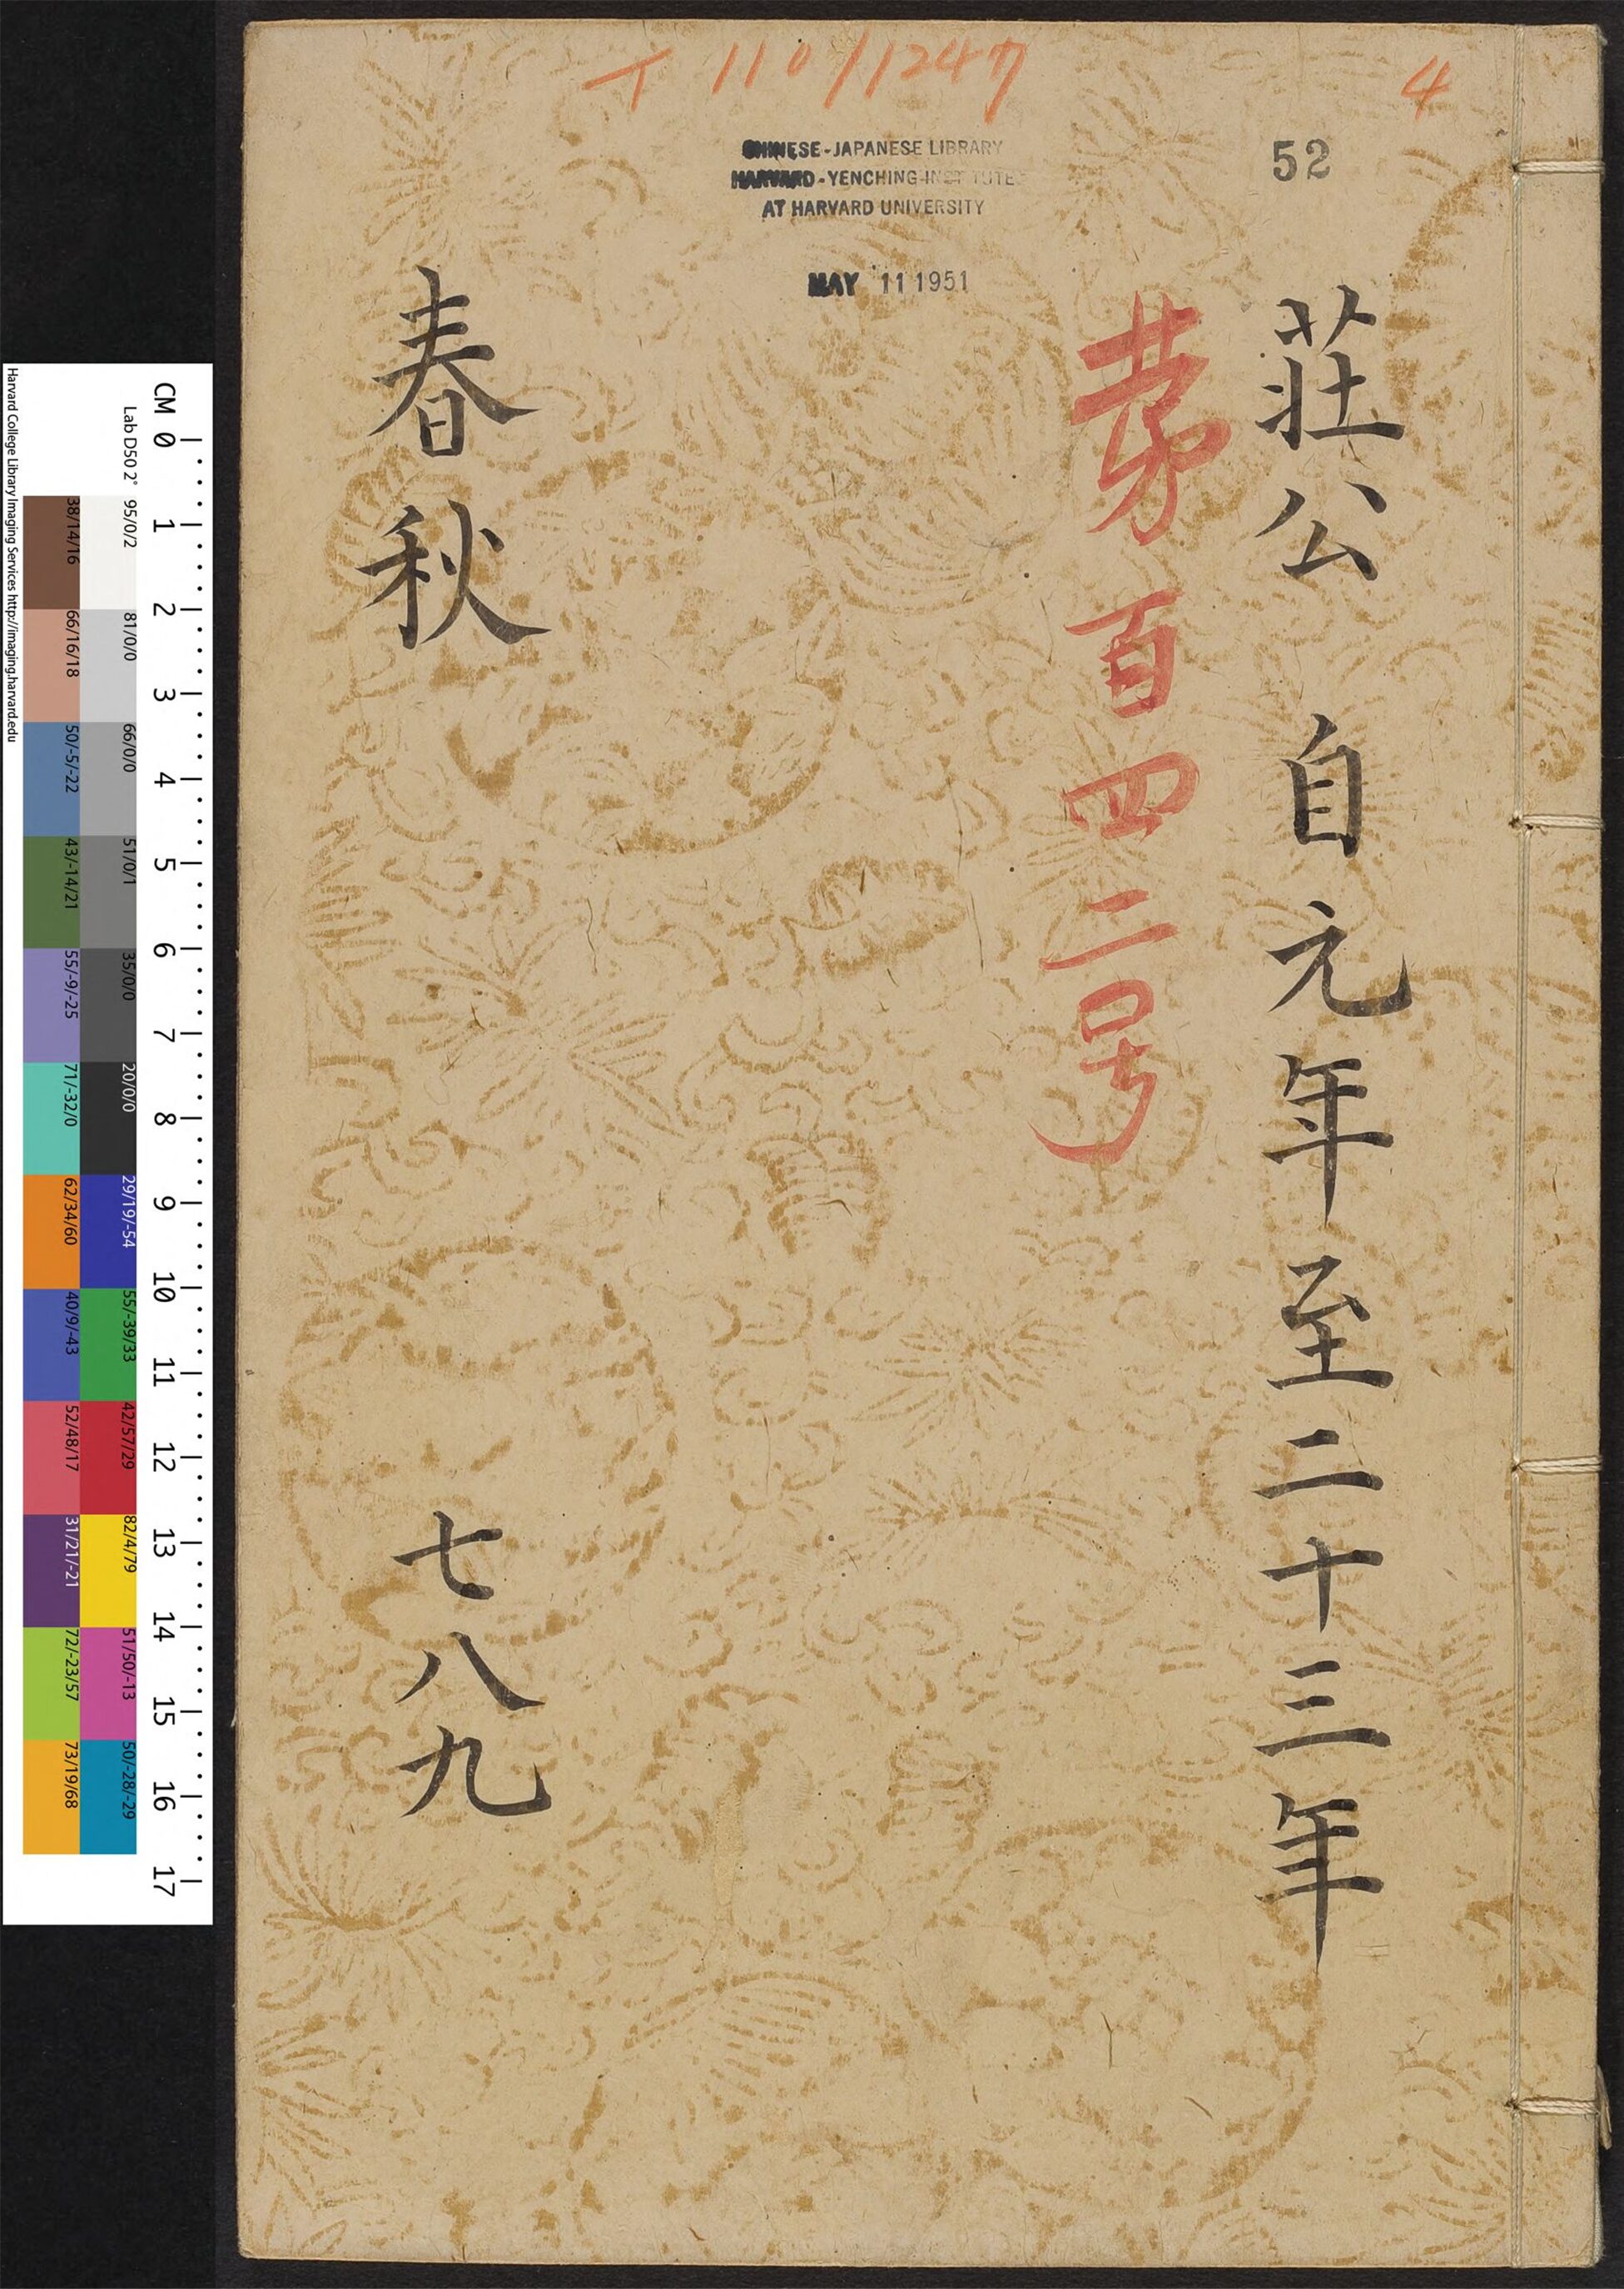 T 110/1247
4
52
CHINESE-JAPANESE LIBRARY
HARVARD-YENCHING INSTITUTE
AT HARVARD UNIVERSITY
MAY 11 1951
莊公 自元年至二十三年
苐百四二号
春秋 七八九
CM 0 1 2 3 4 5 6 7 8 9 10 11 12 13 14 15 16 17
Lab D50 2° 95/0/2 81/0/0 66/0/0 51/0/1 35/0/0 20/0/0 29/19/-54 55/-39/33 42/57/29 82/4/79 51/50/-13 50/-28/-29
38/14/16 66/16/18 50/-5/-22 43/-14/21 55/-9/-25 71/-32/0 62/34/60 40/9/-43 52/48/17 31/21/-21 72/-23/57 73/19/68
Harvard College Library Imaging Services http://imaging.harvard.edu